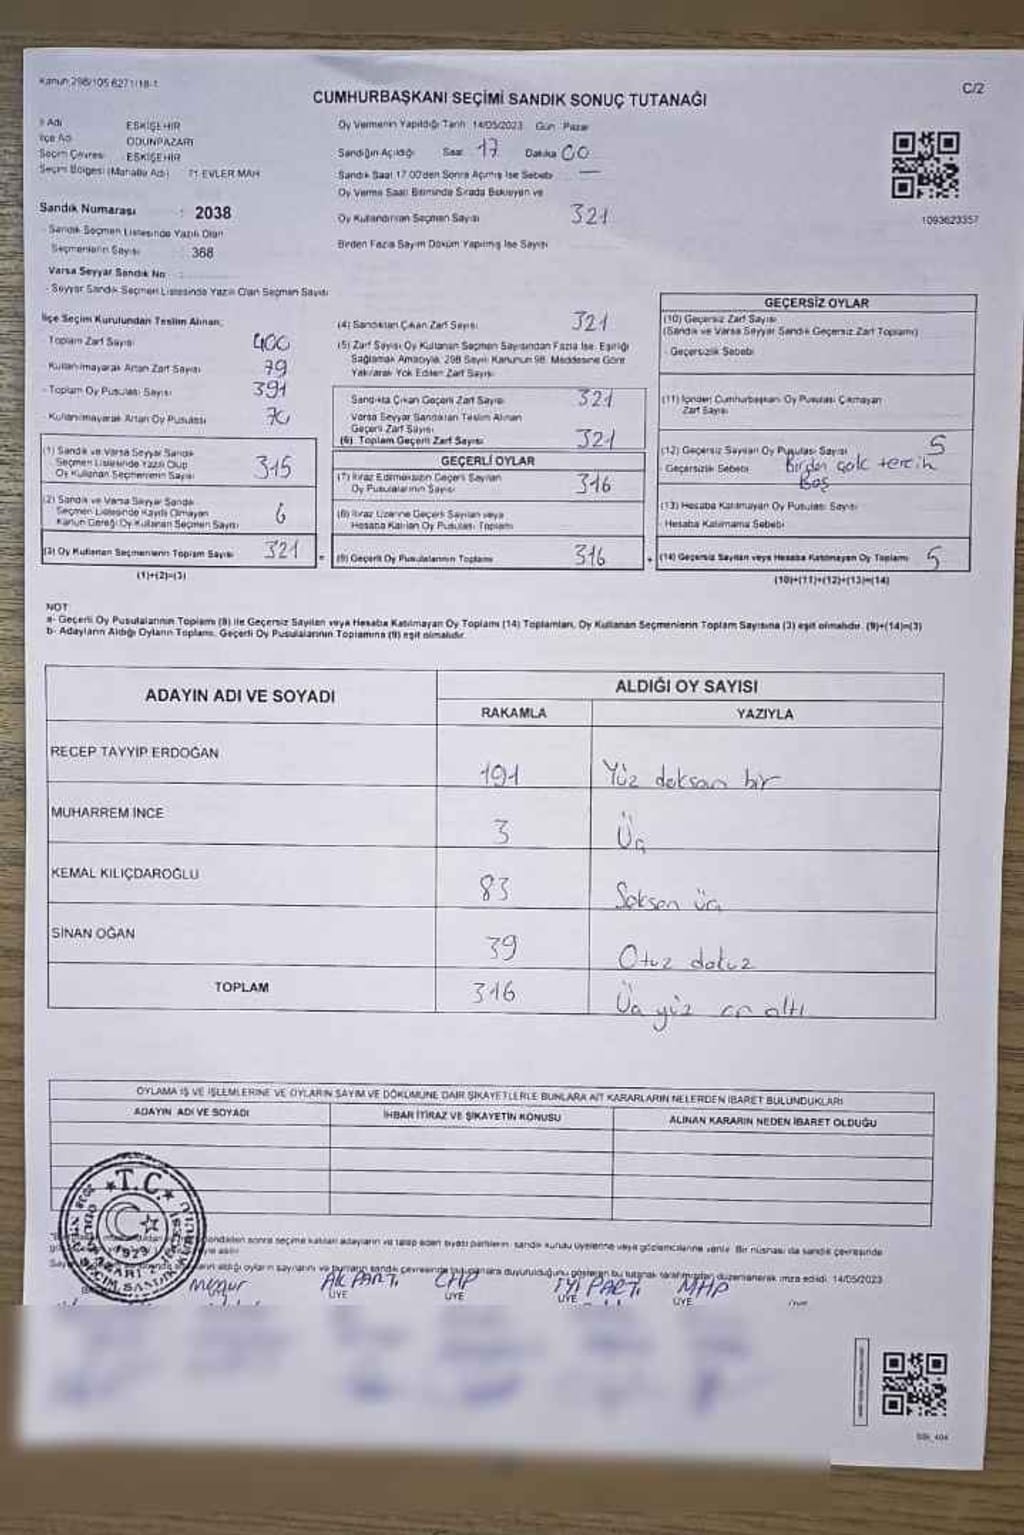 Kanun:298/105 6271/18-1
C/2
CUMHURBAŞKANI SEÇİMİ SANDIK SONUÇ TUTANAĞI
İl Adı ESKİŞEHİR
İlçe Adı ODUNPAZARI
Seçim Çevresi ESKİŞEHİR
Seçim Bölgesi (Mahalle Adı) 71 EVLER MAH
Sandık Numarası : 2038
- Sandık Seçmen Listesinde Yazılı Olan
Seçmenlerin Sayısı : 368
Varsa Seyyar Sandık No :
- Seyyar Sandık Seçmen Listesinde Yazılı Olan Seçmen Sayısı
Oy Vermenin Yapıldığı Tarih 14/05/2023 Gün Pazar
Sandığın Açıldığı Saat 17 Dakika 00
Sandık Saat 17.00'den Sonra Açılmış İse Sebebi —
Oy Verme Saati Bitiminde Sırada Bekleyen ve
Oy Kullandırılan Seçmen Sayısı 321
Birden Fazla Sayım Döküm Yapılmış İse Sayısı
1093623357
İlçe Seçim Kurulundan Teslim Alınan;
- Toplam Zarf Sayısı 400
- Kullanılmayarak Artan Zarf Sayısı 79
- Toplam Oy Pusulası Sayısı 391
- Kullanılmayarak Artan Oy Pusulası 70
(1) Sandık ve Varsa Seyyar Sandık
Seçmen Listesinde Yazılı Olup
Oy Kullanan Seçmenlerin Sayısı 315
(2) Sandık ve Varsa Seyyar Sandık
Seçmen Listesinde Kayıtlı Olmayan
Kanun Gereği Oy Kullanan Seçmen Sayısı 6
(3) Oy Kullanan Seçmenlerin Toplam Sayısı 321
(1)+(2)=(3)
(4) Sandıktan Çıkan Zarf Sayısı 321
(5) Zarf Sayısı Oy Kullanan Seçmen Sayısından Fazla İse, Eşitliği
Sağlamak Amacıyla, 298 Sayılı Kanunun 98. Maddesine Göre
Yakılarak Yok Edilen Zarf Sayısı
Sandıkta Çıkan Geçerli Zarf Sayısı 321
Varsa Seyyar Sandıktan Teslim Alınan
Geçerli Zarf Sayısı
(6) Toplam Geçerli Zarf Sayısı 321
GEÇERLİ OYLAR
(7) İtiraz Edilmeksizin Geçerli Sayılan
Oy Pusulalarının Sayısı 316
(8) İtiraz Üzerine Geçerli Sayılan veya
Hesaba Katılan Oy Pusulası Toplamı
= (9) Geçerli Oy Pusulalarının Toplamı 316
GEÇERSİZ OYLAR
(10) Geçersiz Zarf Sayısı
(Sandık ve Varsa Seyyar Sandık Geçersiz Zarf Toplamı)
- Geçersizlik Sebebi
(11) İçinden Cumhurbaşkanı Oy Pusulası Çıkmayan
Zarf Sayısı
(12) Geçersiz Sayılan Oy Pusulası Sayısı 5
- Geçersizlik Sebebi Birden çok tercih
Boş
(13) Hesaba Katılmayan Oy Pusulası Sayısı
- Hesaba Katılmama Sebebi
+ (14) Geçersiz Sayılan veya Hesaba Katılmayan Oy Toplamı 5
(10)+(11)+(12)+(13)=(14)
NOT
a- Geçerli Oy Pusulalarının Toplamı (9) ile Geçersiz Sayılan veya Hesaba Katılmayan Oy Toplamı (14) Toplamları, Oy Kullanan Seçmenlerin Toplam Sayısına (3) eşit olmalıdır. (9)+(14)=(3)
b- Adayların Aldığı Oyların Toplamı, Geçerli Oy Pusulalarının Toplamına (9) eşit olmalıdır.
ADAYIN ADI VE SOYADI
ALDIĞI OY SAYISI
RAKAMLA YAZIYLA
RECEP TAYYİP ERDOĞAN 191 Yüz doksan bir
MUHARREM İNCE 3 Üç
KEMAL KILIÇDAROĞLU 83 Seksen üç
SİNAN OĞAN 39 Otuz dokuz
TOPLAM 316 Üç yüz on altı
OYLAMA İŞ VE İŞLEMLERİNE VE OYLARIN SAYIM VE DÖKÜMÜNE DAİR ŞİKAYETLERLE BUNLARA AİT KARARLARIN NELERDEN İBARET BULUNDUKLARI
ADAYIN ADI VE SOYADI İHBAR İTİRAZ VE ŞİKAYETİN KONUSU ALINAN KARARIN NEDEN İBARET OLDUĞU
T.C.
1923
sonra seçime katılan adayların ve talep eden siyasi partilerin sandık kurulu üyelerine veya gözlemcilerine verilir. Bir nüshası da sandık çevresinde
aldığı oyların sayılarını ve bunların sandık çevresinde bulunanlara duyurulduğunu gösteren bu tutanak tarafımızdan düzenlenerek imza edildi. 14/05/2023
Memur AK PARTİ CHP İYİ PARTİ MHP
ÜYE ÜYE ÜYE ÜYE